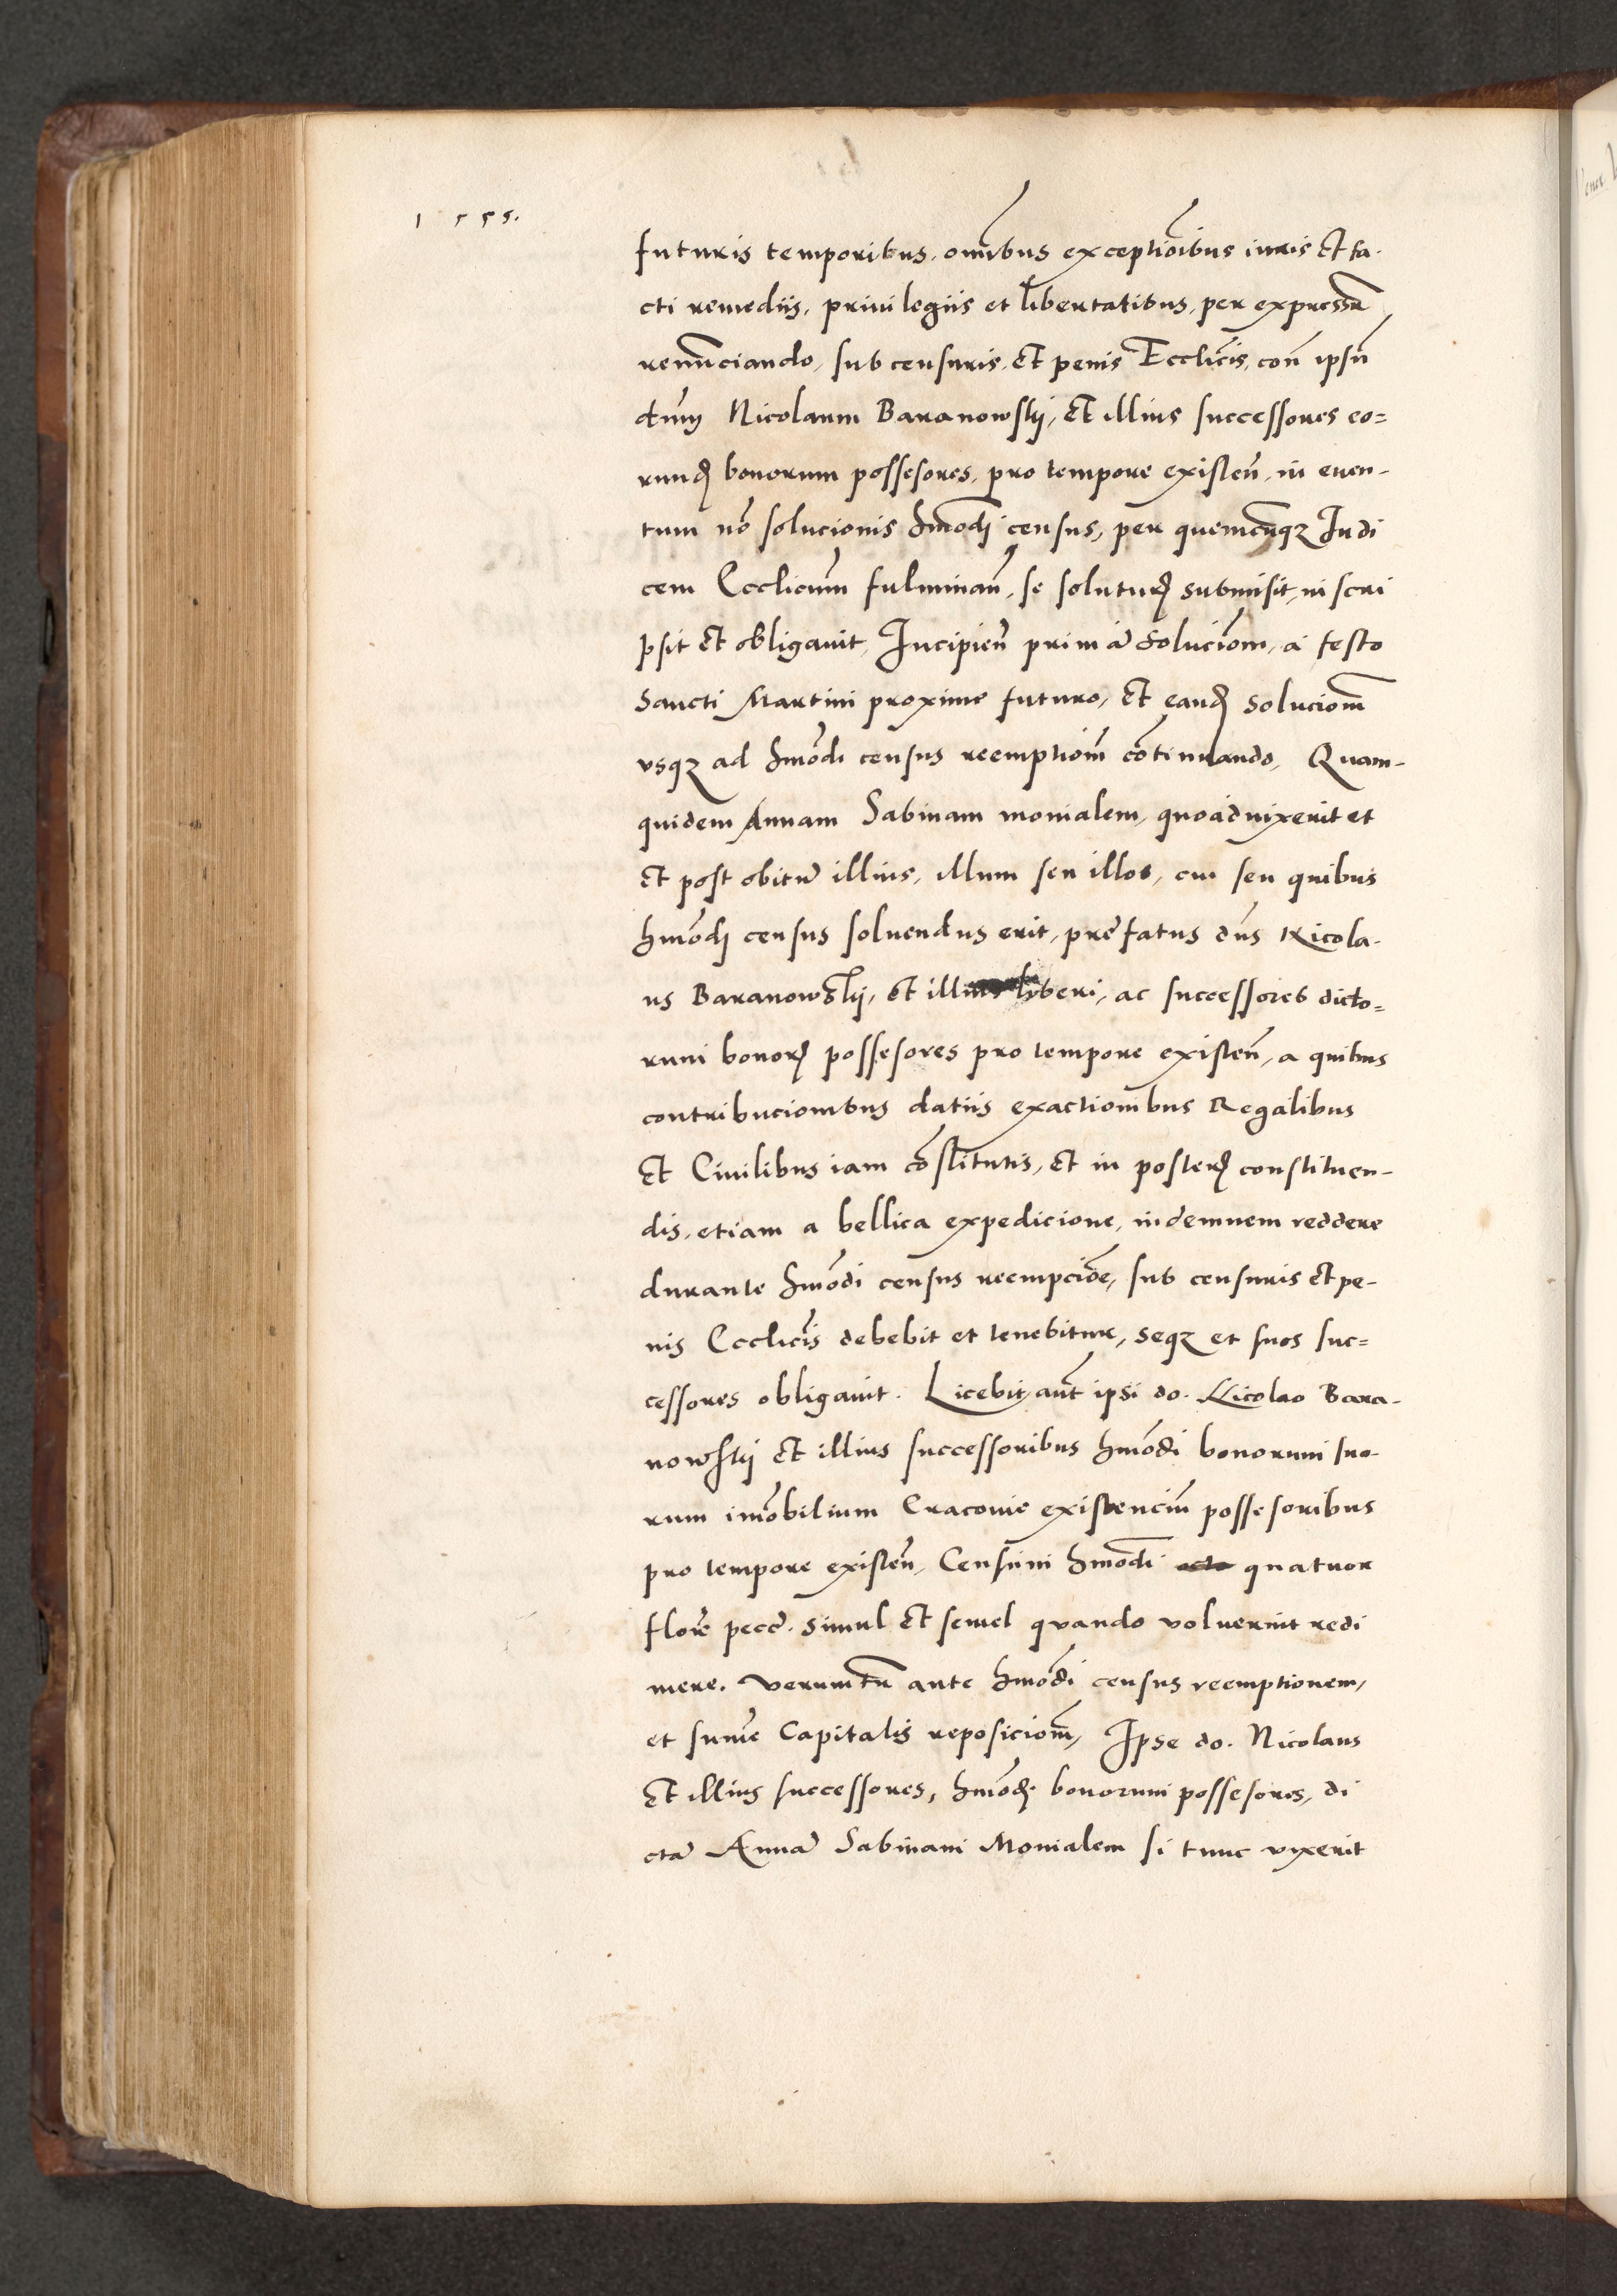 1555.
futuris temporibus, om̃ibus exceptiõibus iuris et fa-
cti remediis, priuilegiis et libertatibus, per expressũ
renũciando, sub censuris, et penis Ecclicis, con̄ ipsũ
dn̄m Nicolaum Baranowskij, et illius successores eo=
rund. bonorum possesores, pro tempore existen̄, in euen-
tum nō solucionis hmōdi census, per quemcūqz Iudi
cem Ecclicum̄ fulminan̄, se soluturum submisit, in scri
psit et obligauit, Incipien̄ primā Solucionem̄, a festo
Sancti Martini proxime futuro, et eand. solucionem̄
vsqz ad hmōdi census reemptionem̄ cōtinuando, Quam-
quidem Annam Sabinam monialem, quoad uixerit et
et post obitū illius, illum seu illos, cui seu quibus
hmōdi census soluendus erit, prefatus dn̄s Nicola-
us Baranowskij, et illius lyberi, ac successores dicto=
rum bonor. possesores pro tempore existen̄, a quibus
contribucionibus datiis exactionibus Regalibus
et Ciuilibus iam cōstitutis, et in poster. constituen-
dis, etiam a bellica expedicione, indemnem reddere
durante hmōdi census reempcione, sub censuris et pe-
nis Ecclicis debebit et tenebitur, seqz et suos suc=
cessores obligauit. Licebit aut̄ ipsi do. Nicolao Bara-
nowskij et illius successoribus hmōdi bonorum suo-
rum imōbilium Cracouie existencium̄ possesoribus
pro tempore existen̄, Censum hmōdi octo quatuor
floren̄ pecc̄. simul et semel quando voluerint redi
mere. verumtn̄ ante hmōdi census reemptionem,
et sum̄e Capitalis reposicionem̄, Ipse do. Nicolaus
et illius successores, hmōdi bonorum possesores, di
ctā Annā Sabinam Monialem si tunc vixerit